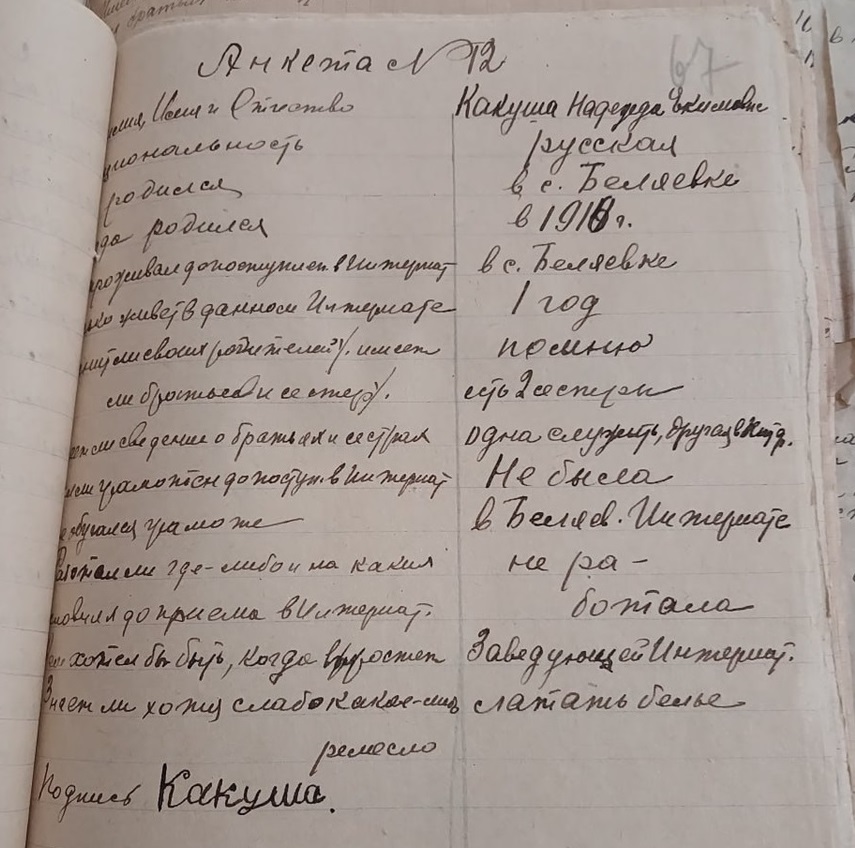 Анкета N 12
67
милия, Имя и Отчество Какуша Надежда Екимовне
циональность русская
родился в с. Беляевке
да родился в 1918 г.
проживал до поступлен. в Интернат в с. Беляевке
ко живет в данном Интернате 1 год
нит ли своих родителей). имеет помню
ли братьев и сестер). есть 2 сестры
ет ли сведения о братьях и сестрах одна служит, другая в
ли грамотен до поступ. в Интернат Не была
е обучался грамоте в Беляев. Интернате
Работал ли где-либо и на каких не ра-
ловиях до приема в Интернат. ботала
ем хотел бы быть, когда выростет Заведующей Интернат.
Знает ли хотя слабо какое-либ латать белье
ремесло
Подпись Какуша.